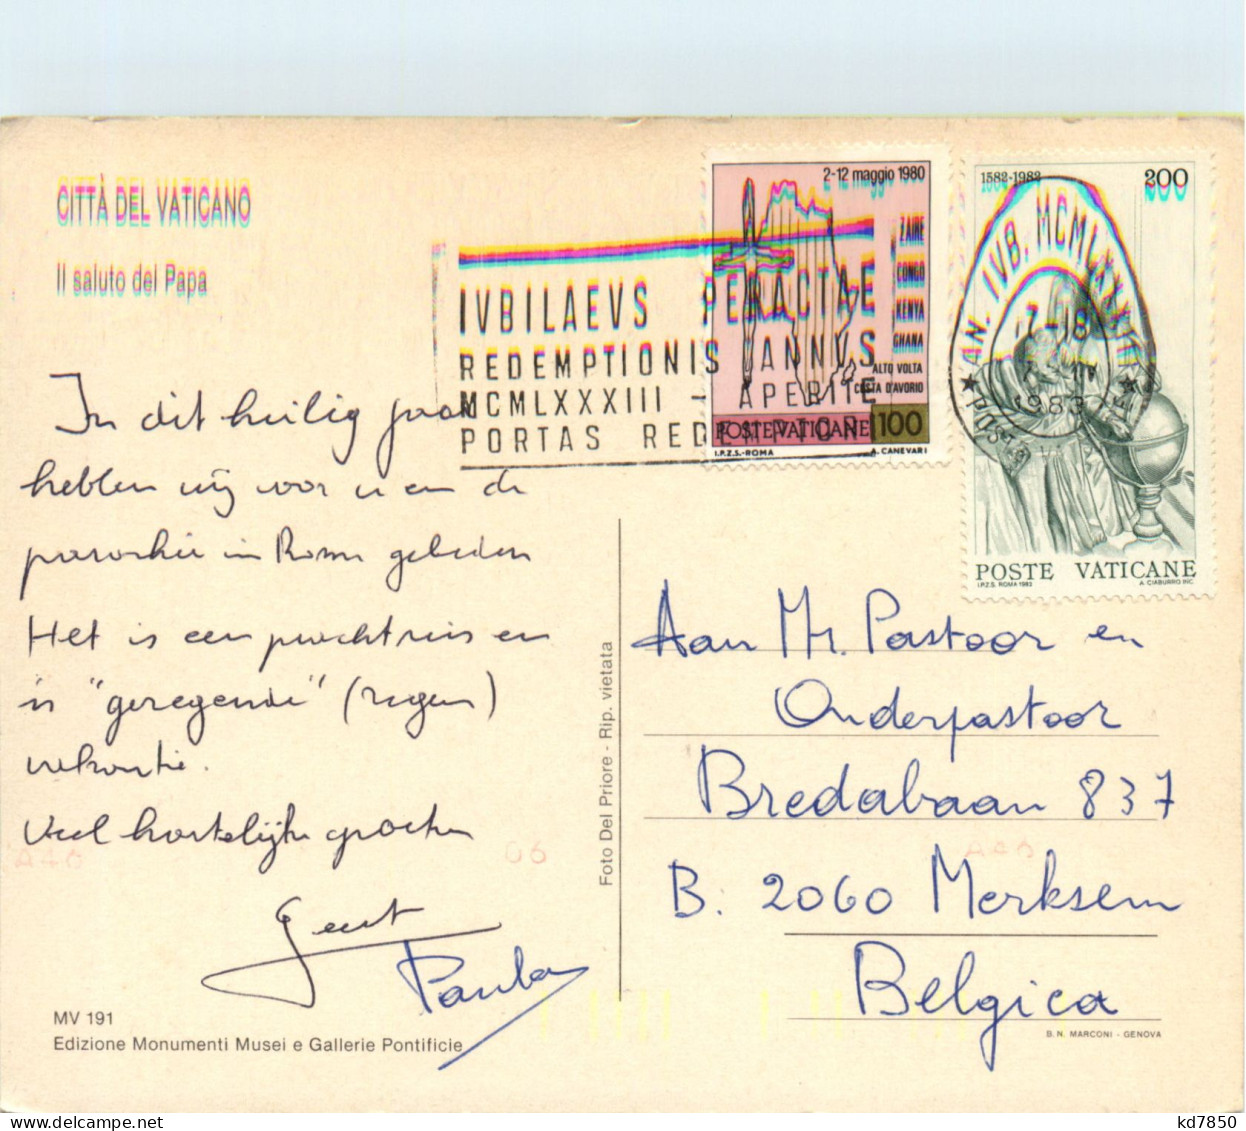 CITTÀ DEL VATICANO
Il saluto del Papa
2-12 maggio 1980
ZAIRE
CONGO
KENYA
GHANA
ALTO VOLTA
COSTA D'AVORIO
POSTE VATICANE 100
I.P.Z.S.-ROMA A. CANEVARI
1582-1982 200
POSTE VATICANE
I.P.Z.S. ROMA 1982 A. CIABURRO INC.
IVBILAEVS PERACTAE
REDEMPTIONIS ANNVS
MCMLXXXIII - APERITE
PORTAS REDEMPTORI
AN. IVB. MCMLXXXIII
17-18
1983
In dit heilig jaar
hebben wij voor u en de
parochie in Rome gebeden
Het is een prachtreis en
'n "geregende" (regen)
vakantie.
Veel hartelijke groeten
Geert
Paula
Aan Mr. Pastoor en
Onderpastoor
Bredabaan 837
B. 2060 Merksem
Belgica
Foto Del Priore - Rip. vietata
A46 06 A46
MV 191
Edizione Monumenti Musei e Gallerie Pontificie
B. N. MARCONI - GENOVA
kd7850